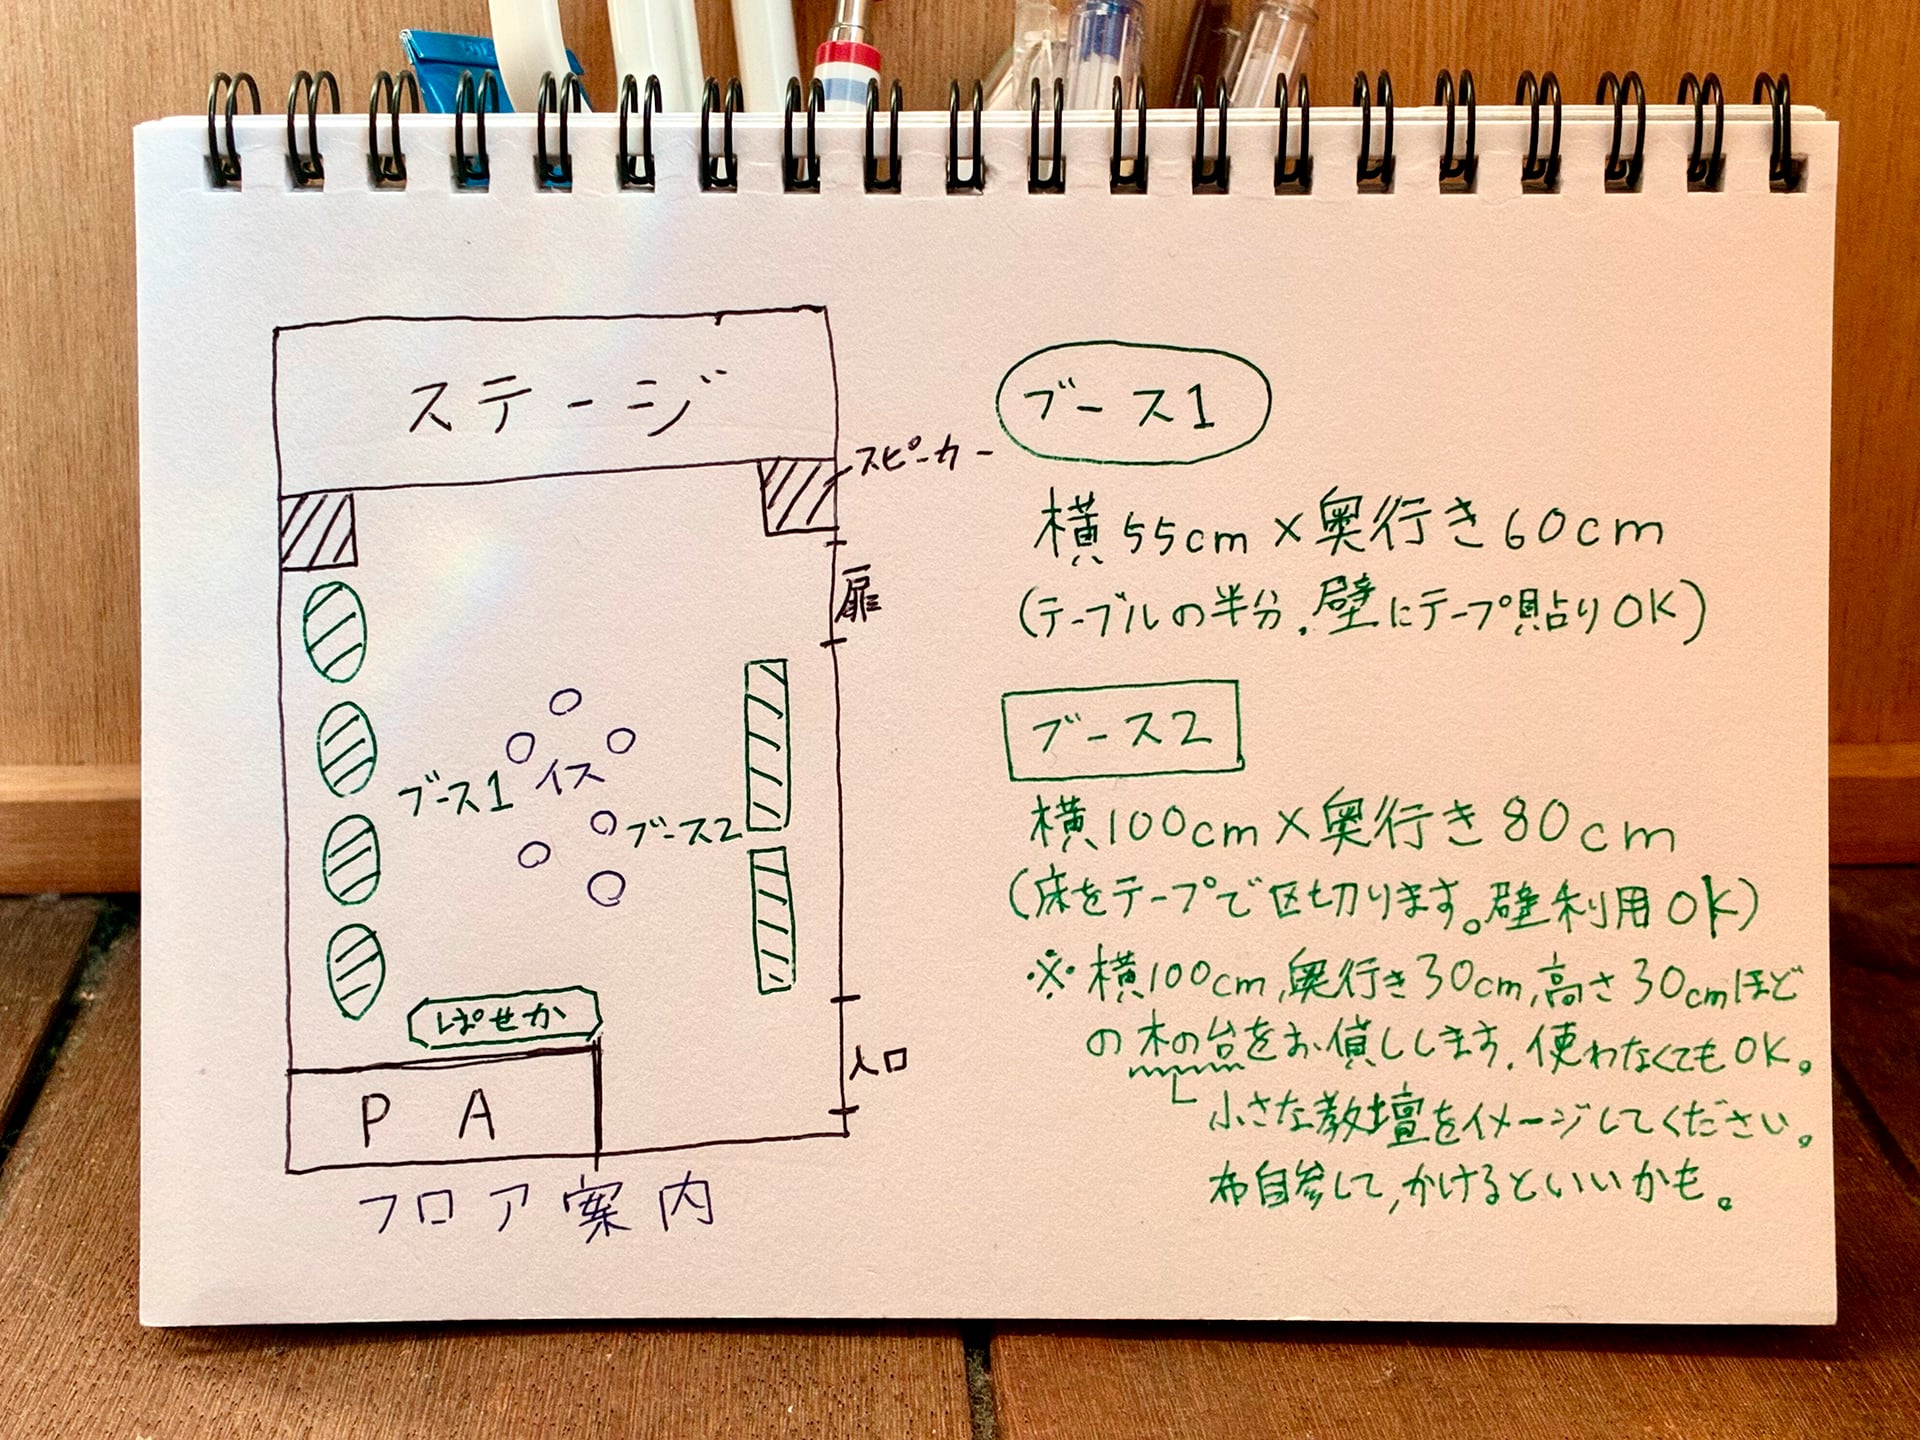 ステージ
スピーカー
扉
ブース1
イス
ブース2
ぱせか
入口
PA
フロア案内
ブース1
横55cm×奥行き60cm
(テーブルの半分.壁にテープ貼りOK)
ブース2
横100cm×奥行き80cm
(床をテープで区切ります。壁利用OK)
※横100cm,奥行き30cm,高さ30cmほど
の木の台をお貸しします.使わなくてもOK。
小さな教壇をイメージしてください。
布自参して,かけるといいかも。